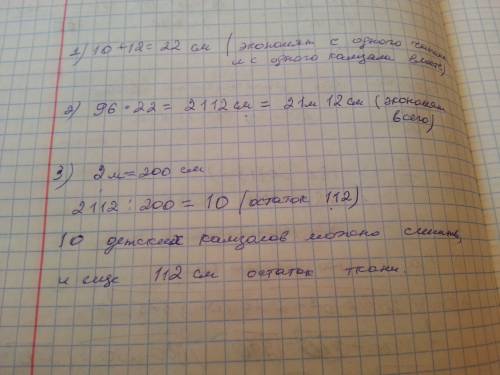 1) 10 + 12 = 22 см (экономят с одного
и с одного камзола вместе)
2) 96 · 22 = 2112 см = 21м 12 см (экономят
всего)
3) 2м = 200 см
2112 : 200 = 10 (остаток 112)
10 детских камзолов можно сшить,
и еще 112 см остаток ткани.